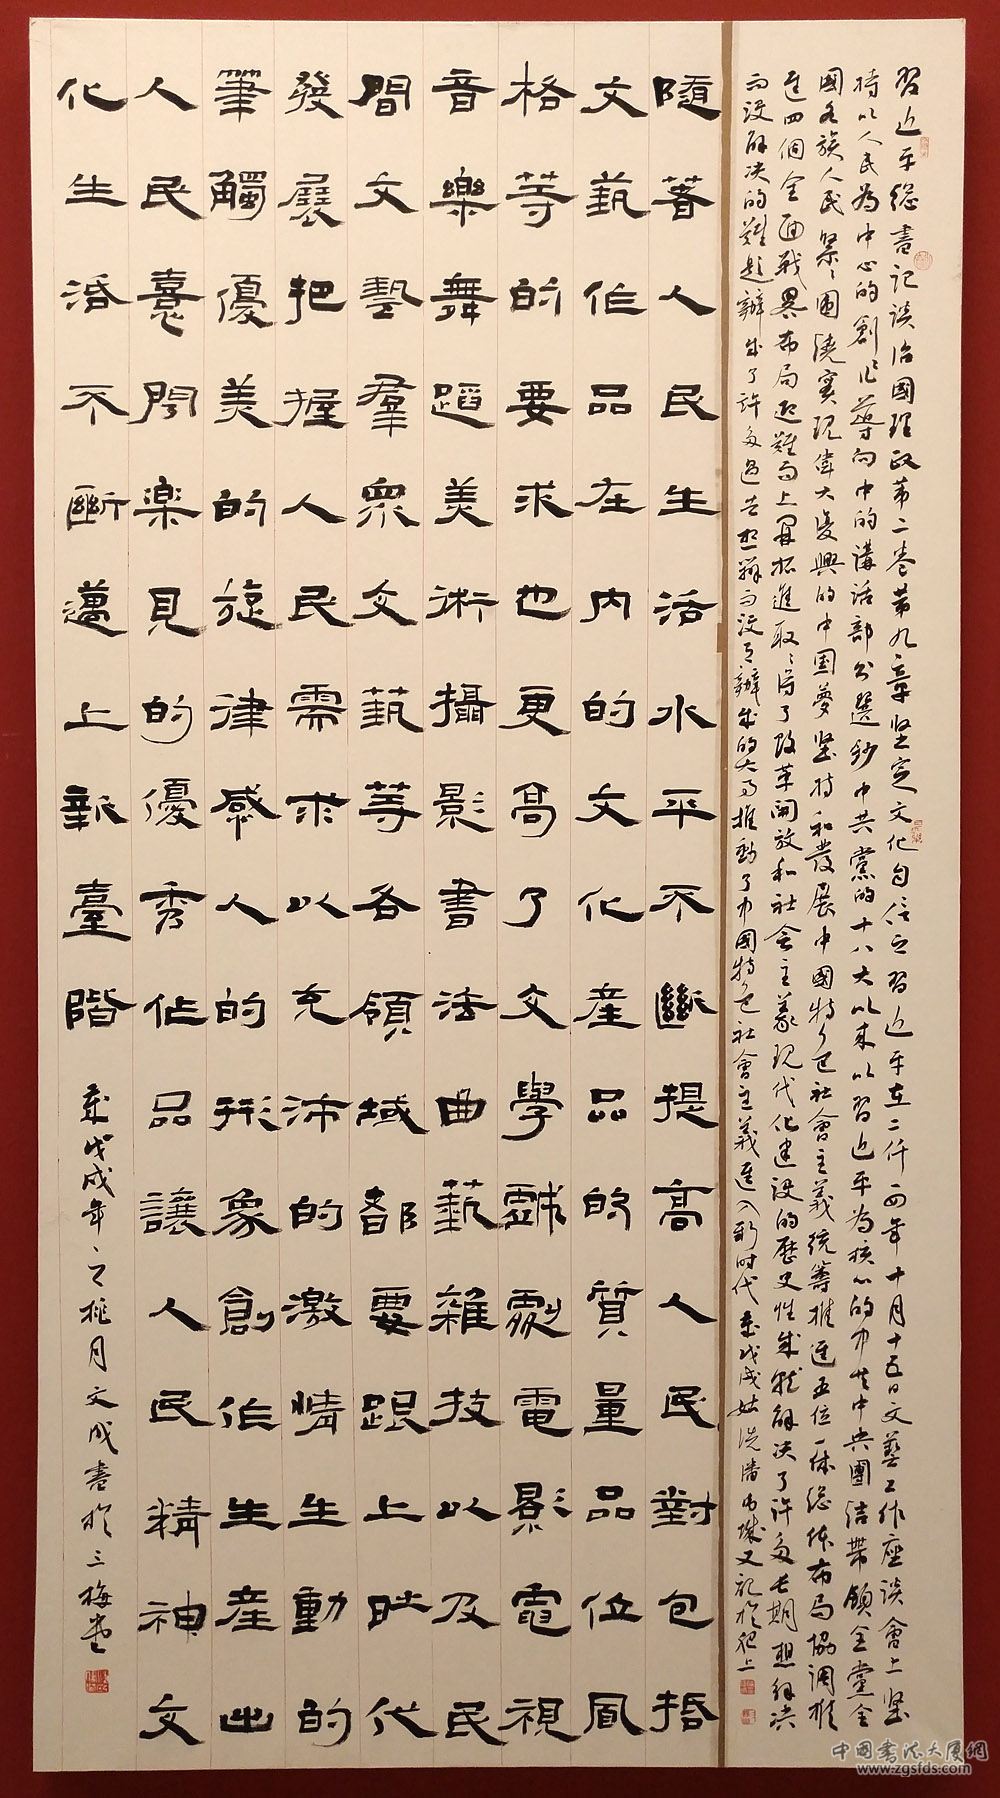 習近平總書記談治國理政第二卷第九章堅定文化自信之習近平在二仟一四年十月十五日文藝工作座談會上堅
持以人民為中心的創作導向中的講話部分選鈔中共黨的十八大以來以習近平為核心的中共中央團結帶領全黨全
國各族人民緊〻圍繞實現偉大復興的中国夢堅持和發展中國特色社會主義統籌推進五位一体總体布局協調推
進四個全面戰畧布局迎難而上開拓進取〻得了改革開放和社会主義現代化建設的歷史性成就解决了許多長期想解决
而没解决的難題辦成了許多過去想辦而没有辦成的大事推動了中國特色社會主義進入新时代 歲戊戌姑洗潘文成又記於滬上
隨着人民生活水平不斷提高人民對包括
文藝作品在内的文化產品的質量品位風
格等的要求也更高了文學戲劇電影電視
音樂舞蹈美術攝影書法曲藝雜技以及民
間文藝羣眾文藝等各領域都要跟上时代
發展把握人民需求以充沛的激情生動的
筆觸優美的旋律感人的形象創作生產出
人民喜聞楽見的優秀作品讓人民精神文
化生活不斷邁上新臺階 歲戊戌年之桃月文成書於三梅堂
中國書法大廈網
www.zgsfds.com